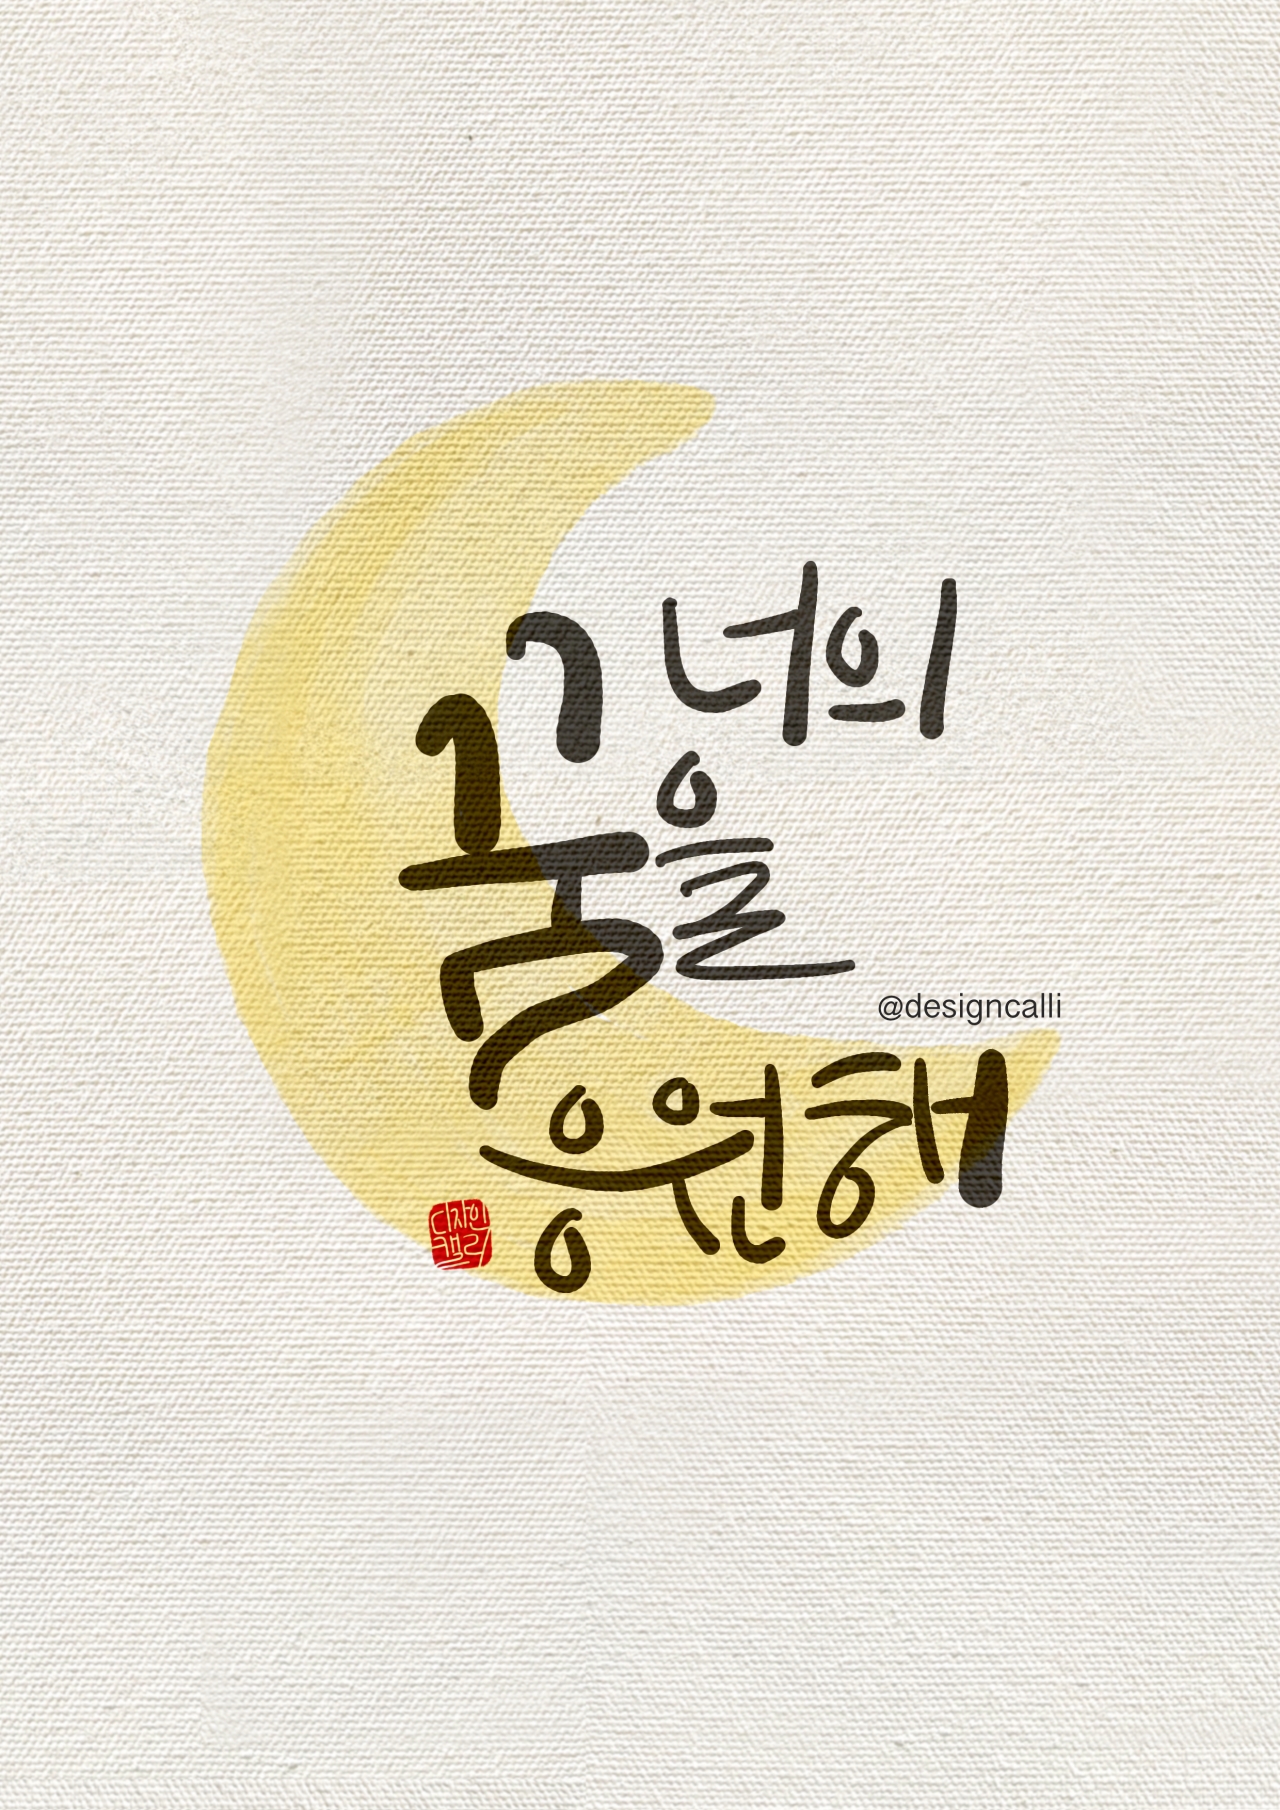 너의
꿈을
@designcalli
응원해
디자인
캘리